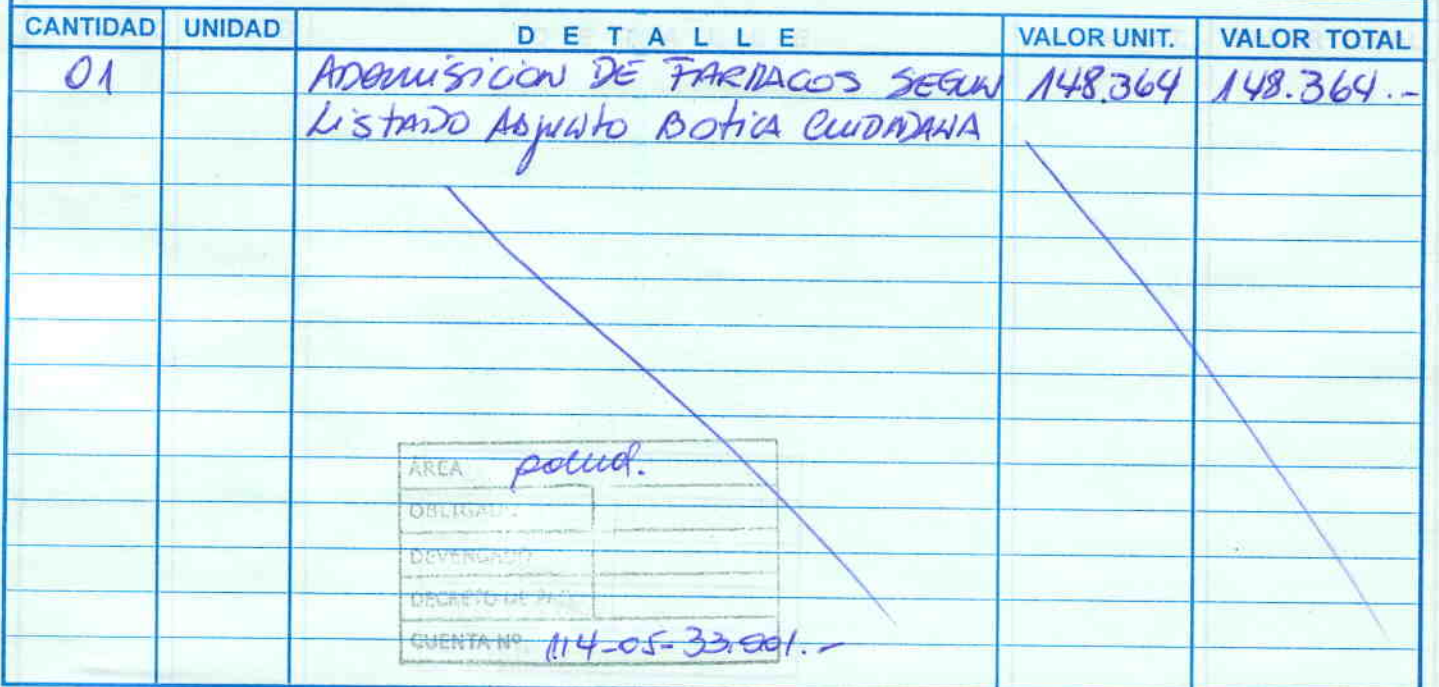 CANTIDAD UNIDAD DETALLE VALOR UNIT. VALOR TOTAL
01 ADQUISICION DE FARMACOS SEGUN 148.364 148.364.-
LISTADO ADJUNTO BOTICA CIUDADANA
AREA
OBLIGADO
DEVENGADO
DECRETO DE PAGO
CUENTA Nº 114-05-33.001.-